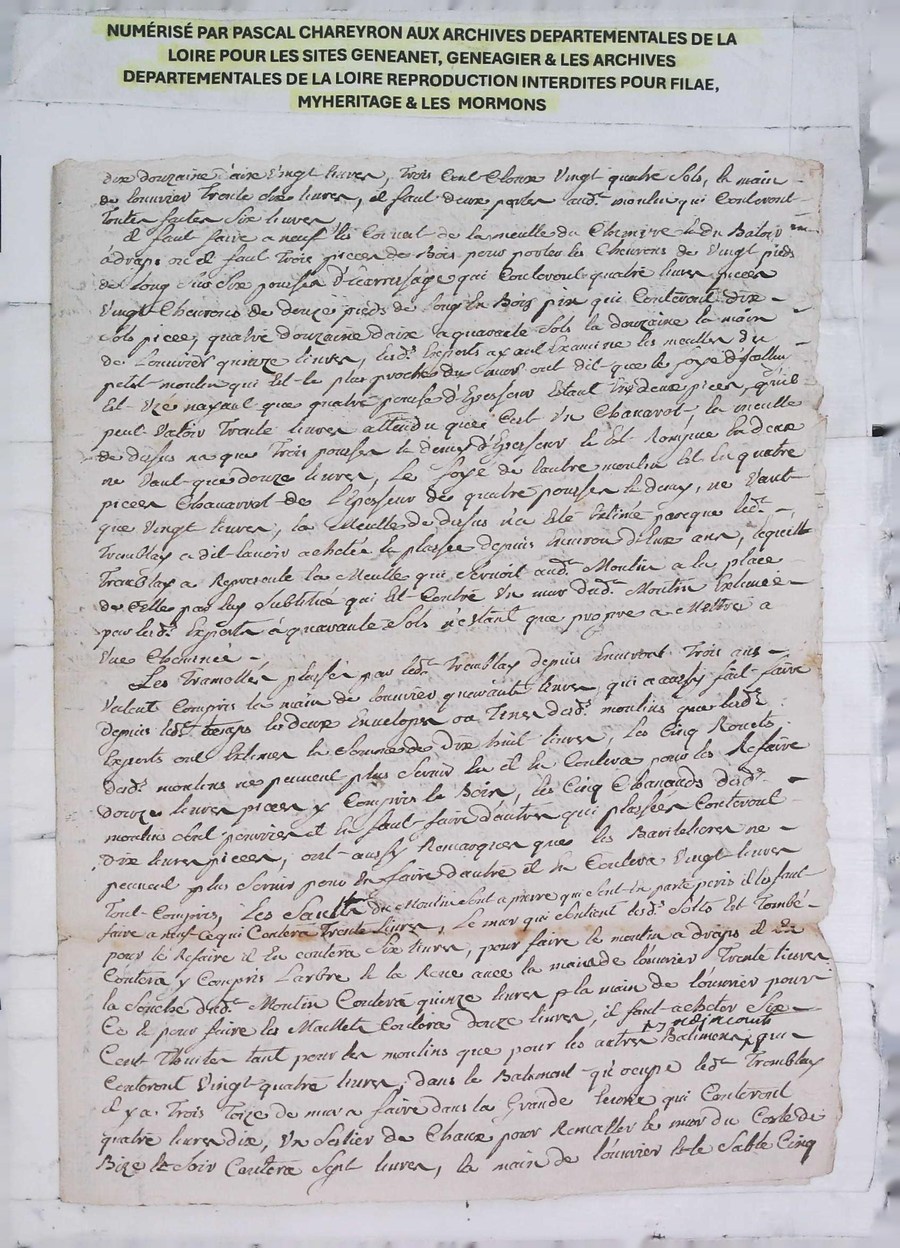 NUMÉRISÉ PAR PASCAL CHAREYRON AUX ARCHIVES DEPARTEMENTALES DE LA
LOIRE POUR LES SITES GENEANET, GENEAGIER & LES ARCHIVES
DEPARTEMENTALES DE LA LOIRE REPRODUCTION INTERDITES POUR FILAE,
MYHERITAGE & LES MORMONS
dix douzaine d'aix Vingt livres, Trois Cent Cloux Vingt quatre Sols, la main
de louvrier Trente dix livres, il faut deux portes aud. moulin qui Conteront
Toutes faites Six livres,
Il faut faire a neuf le Couvert de la meulle du Chenive & du Batoir
à draps ou il faut Trois pieces de Bois pour porter les Chevrons de Vingt pieds
de long Sur Six pousses D'ecarrissage qui Conteront quatre livres pieces
Vingt Chevrons de douze pieds de long En Bois pin qui Conteront dix
Sols piece, quatre douzaine d'aix a quarante Sols la douzaine la main
de Louvrier quinze livres, lesd. Experts ayant Examiné les meulles du
petit moulin qui Est le plus proche du mur ont dit que le
Est Uzé nayant que quatre pousse d'Epesseur Estant En deux pieces, qu'il
peut Valoir Trente livres attendu que C'est Un Chanavot, la meulle
de dessus na que Trois pousses & demy d'Epesseur & Est Rompue En deux
ne Vaut que douze livres, Le de lautre moulin Est En quatre
pieces Chanavot de L'Epesseur de quatre pousses & demy, ne Vaut
que Vingt livres, la Meulle de dessus n'a Esté Estimé parceque led.
Tremblay a dit lavoir achetée & plassée depuis Environ deux ans, lequel
Tremblay a Représenté la Meulle qui Servoit aud. Moulin a la place
de Celle par luy Subtitué qui Est Contre Un mur dud. Moulin Estimée
par lesd. Experts à quarante Sols n'estant que propre a Mettre a
Une Cheminée
Les Tramolles plassée par led. Tremblay depuis Environt Trois ans
Valent Compris la main de louvrier quarante livres, qui a aussy fait faire
depuis led. temps les deux Envelopes ou Tines desd. moulins que lesd.
Experts ont Estimés la Somme de Dix huit livres, les Cinq Rouets
desd. moulins ne peuvent plus Servir & il En Contera pour les Refaire
douze livres pieces y Compris le Bois, les Cinq Chanauds desd.
moulins Sont pourries et En faut faire d'autres qui plassées Conteront
Dix livres pieces, ont aussy Remarqués que les Baritelieres ne
peuvent plus Servir pour En faire d'autre il En Contera Vingt livres
Tout Compris, Les du Moulin Sont a pierre qui Sont En partie peris il les faut
faire a neuf Ce qui Contera Trente Livres, Le mur qui Soutient lesd. Est Tombé
pour le Refaire il En contera Six livres, pour faire le moulin a draps il En
Contera y Compris Larbre & la Roue avec la main de louvrier Trente livres
la Souche dud. Moulin Contera quinze livres, la main de louvrier pour
Ce & pour faire les Maillets Contera douze livres, il faut acheter Six
Cent Thuiles tant pour les moulins que pour les autres Batimens qui
Conteront Vingt quatre livres, dans le Batiment qu'ocupe led. Tremblay
Il y a Trois Toize de mur a faire dans la Grande qui Conteront
quatre livres dix, Un Setier de Chaux pour le mur du Costé de
Bize & Soir Contera Sept livres, la main de louvrier & le Sable Cinq